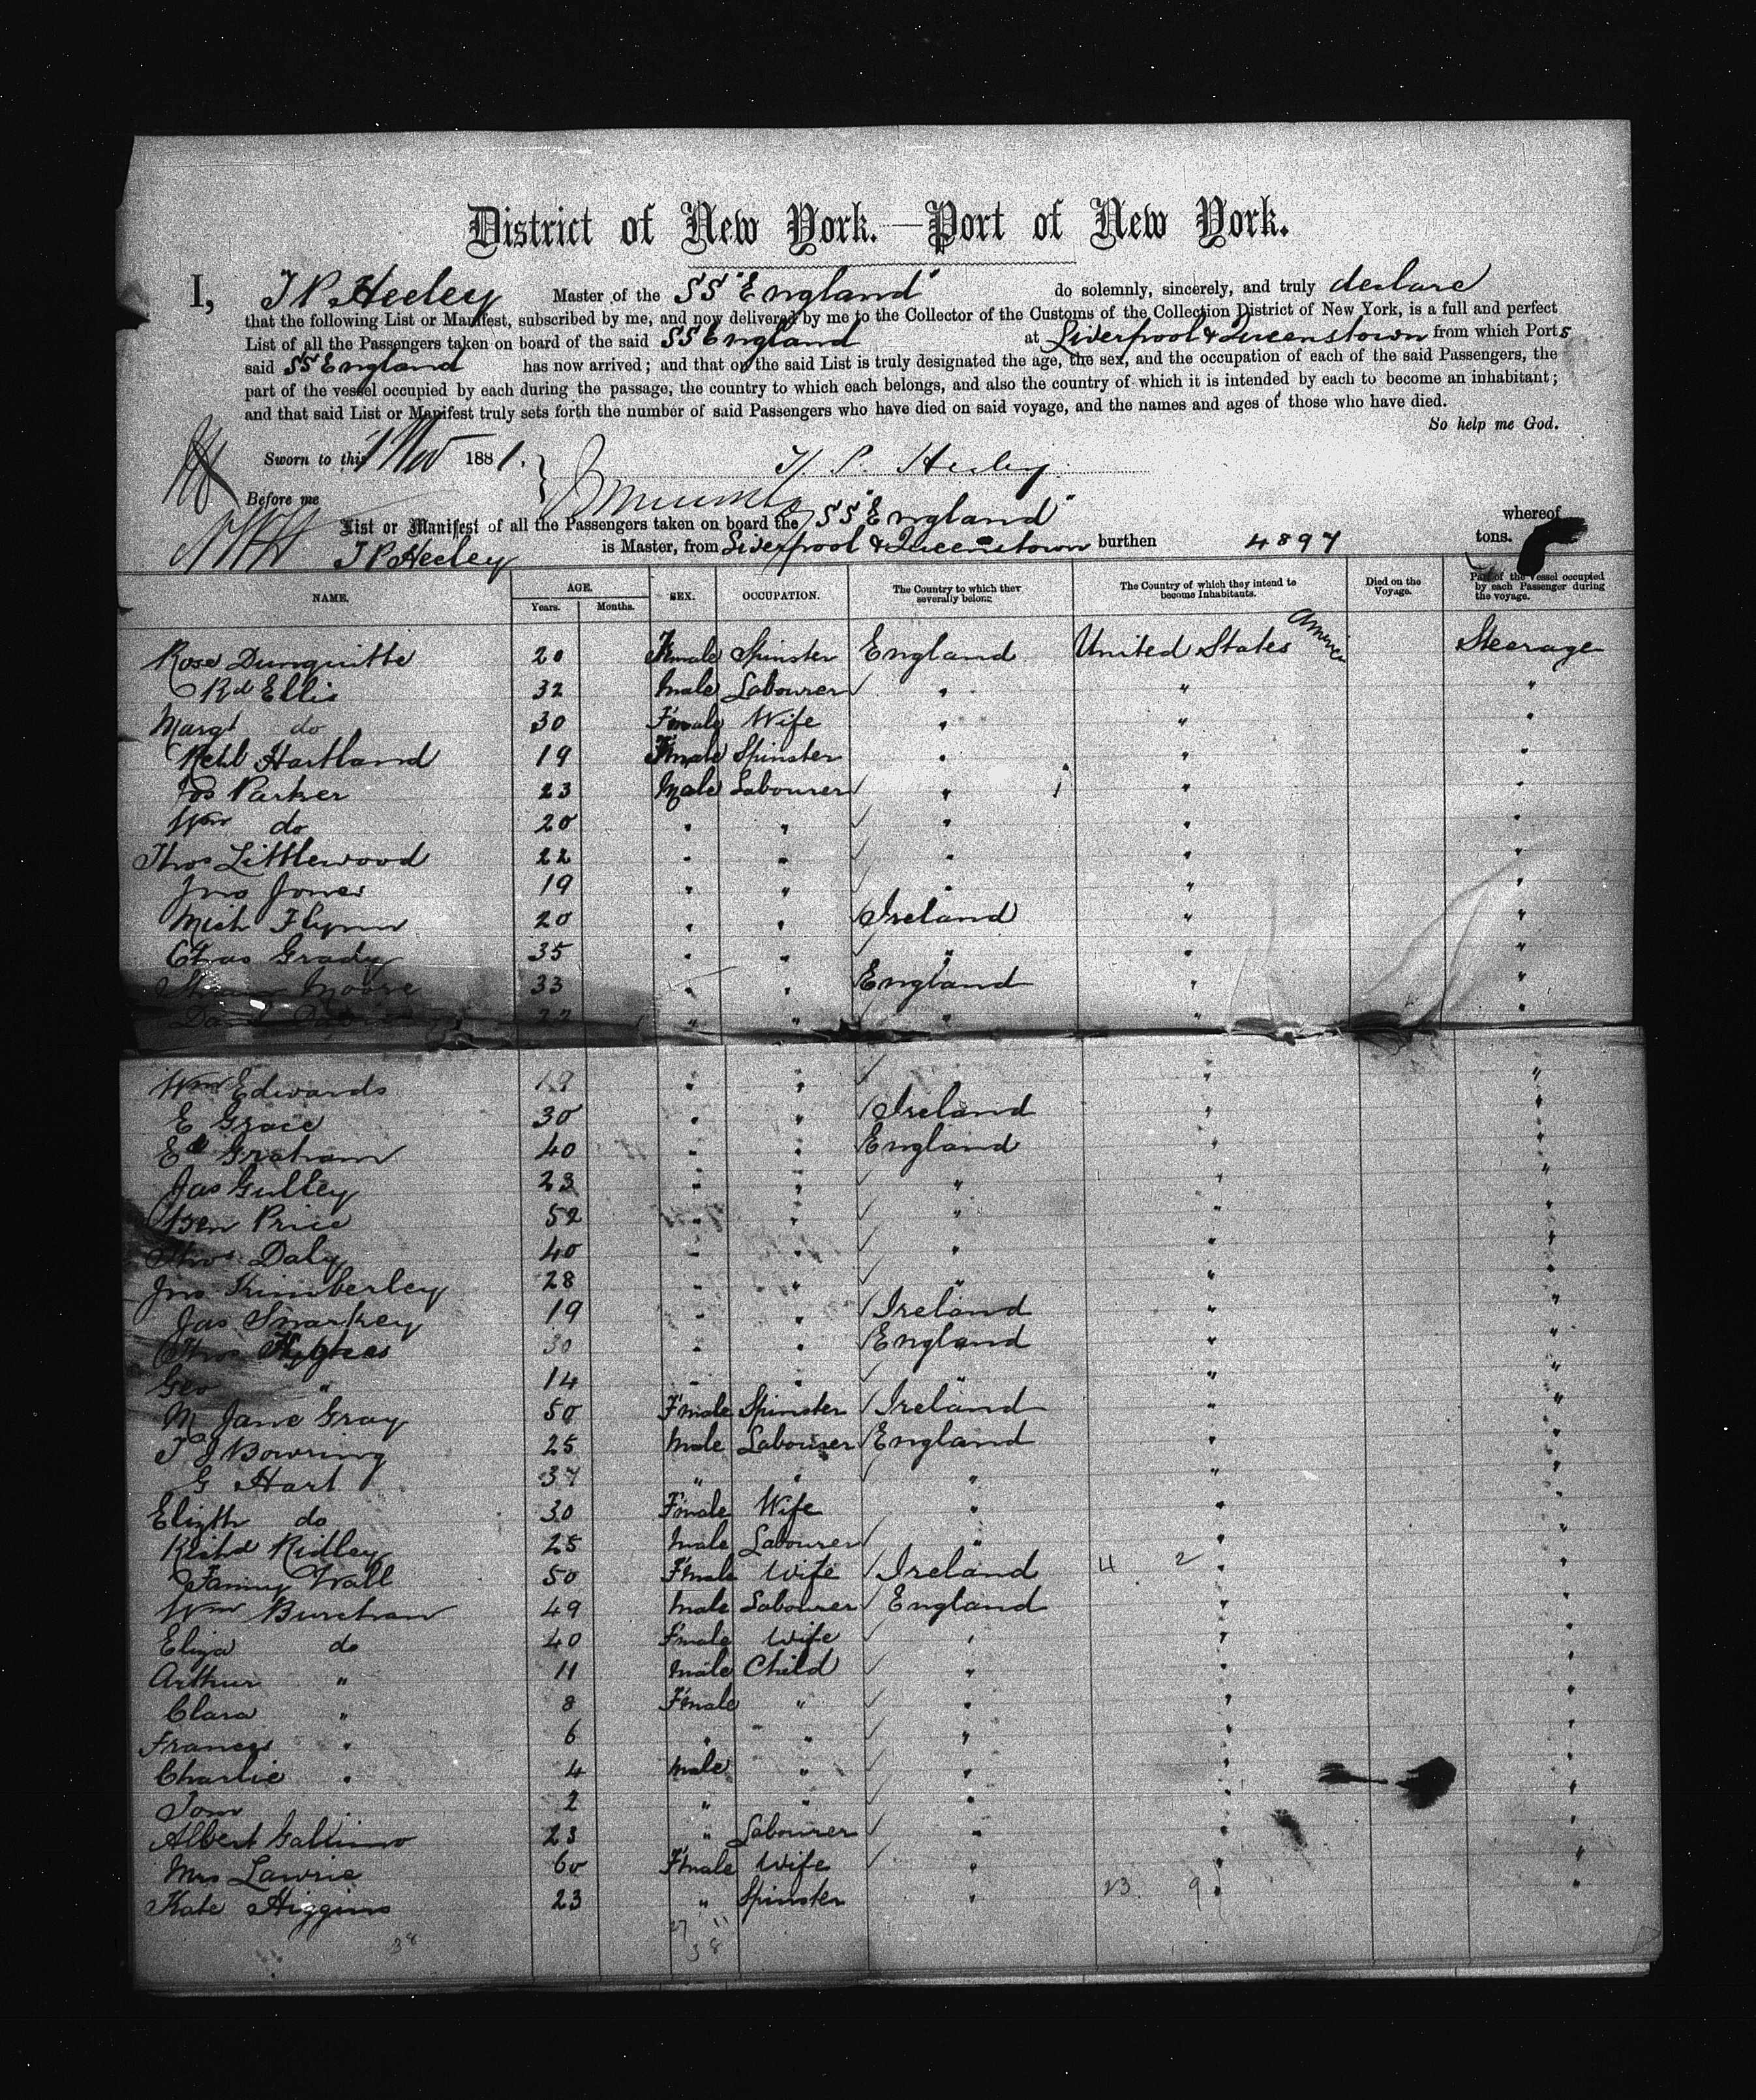 District of New York.—Port of New York.
I, T P Heeley Master of the SS "England" do solemnly, sincerely, and truly declare
that the following List or Manifest, subscribed by me, and now delivered by me to the Collector of the Customs of the Collection District of New York, is a full and perfect
List of all the Passengers taken on board of the said SS England at Liverpool & Queenstown from which Ports
said SS England has now arrived; and that on the said List is truly designated the age, the sex, and the occupation of each of the said Passengers, the
part of the vessel occupied by each during the passage, the country to which each belongs, and also the country of which it is intended by each to become an inhabitant;
and that said List or Manifest truly sets forth the number of said Passengers who have died on said voyage, and the names and ages of those who have died.
So help me God.
Sworn to this 1 Nov 1881. T. P. Heeley
Before me
List or Manifest of all the Passengers taken on board the SS "England" whereof
T P Heeley is Master, from Liverpool & Queenstown burthen 4897 tons.
NAME. AGE. Years. Months. SEX. OCCUPATION. The Country to which they severally belong. The Country of which they intend to become Inhabitants. Died on the Voyage. Part of the Vessel occupied by each Passenger during the voyage.
Rose Dunquitte 20 Female Spinster England United States America Steerage
Rd Ellis 32 Male Labourer " " "
Margt do 30 Female Wife " " "
Hartland 19 Female Spinster " " "
Jos Parker 23 Male Labourer " " "
Wm do 20 " " " " "
Thos Littlewood 22 " " " " "
Jno Jones 19 " " " " "
Mich Flynn 20 " " Ireland " "
Chas Grady 35 " " " " "
Moore 33 " " England " "
" " " " "
Wm Edwards 19 " " " "
E Grace 30 " " Ireland " "
Ed Graham 40 " " England " "
Jas Gulley 23 " " " " "
Ben Price 52 " " " " "
Thos Daly 40 " " " " "
Jno Kimberley 28 " " " " "
Jas Sharkey 19 " " Ireland " "
Thos Hughes 30 " " England " "
Geo " 14 " " " " "
M Jane Gray 50 Fmale Spinster Ireland " "
T J Bowring 25 Male Labourer England " "
G Hart 37 " " " " "
Elizth do 30 Fmale Wife " " "
Richd Ridley 25 Male Labourer " " "
Fanny Wall 50 Fmale Wife Ireland 4 2 " "
Wm Burcham 49 Male Labourer England " "
Eliza do 40 Fmale Wife " " "
Arthur " 11 Male Child " " "
Clara " 8 Fmale " " " "
Frances " 6 " " " " "
Charlie " 4 Male " " " "
Tom 2 " " " " "
Albert Gallimo 23 " Labourer " " "
Mrs Lawrie 60 Fmale Wife " " "
Kate Higgins 23 " Spinster " 23 9 " "
38 27 11
38